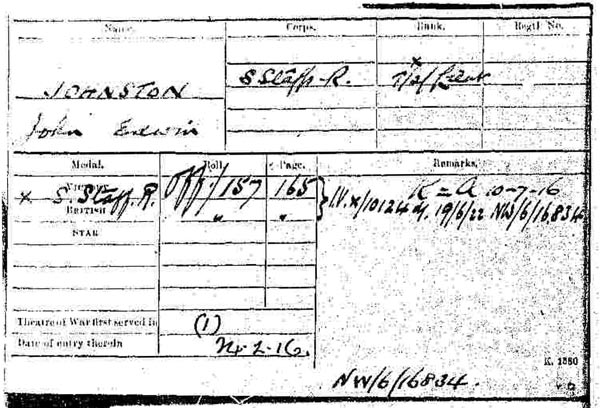 Name. Corps. Rank. Regtl. No.
JOHNSTON S Staff. R. × T/2/Lieut
John Edwin
Medal. Roll. Page. Remarks.
VICTORY K = A 10-7-16
× S. Staff. R. Off/157 165 } I.V. x/10124 d/. 19/6/22 NW/6/16834
BRITISH " "
STAR
Theatre of War first served in (1)
Date of entry therein 24-2-16.
K. 1380
NW/6/16834.